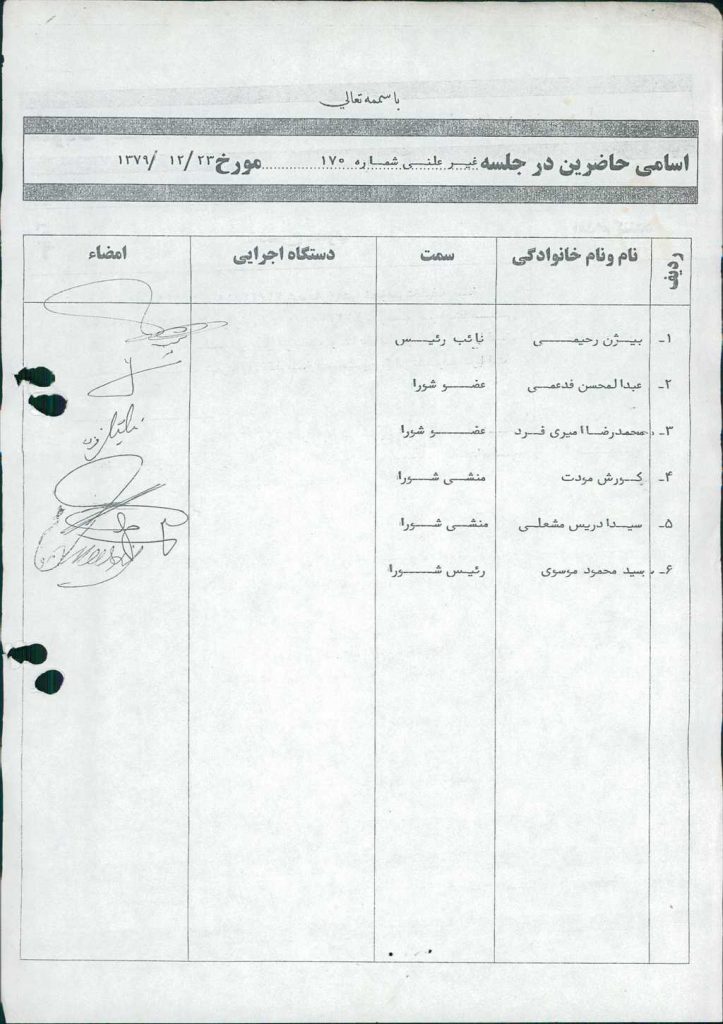 باسمه تعالي
اسامی حاضرین در جلسه غیر علنی شماره ۱۷۰ مورخ ۱۳۷۹/ ۱۲/ ۲۳
ردیف نام ونام خانوادگی سمت دستگاه اجرایی امضاء
۱ـ بیژن رحیمی نائب رئیس
۲ـ عبدالمحسن فدعمی عضو شورا
۳ـ محمدرضا امیری فرد عضو شورا
۴ـ کورش مودت منشی شورا
۵ـ سیدادریس مشعلی منشی شورا
۶ـ سید محمود موسوی رئیس شورا